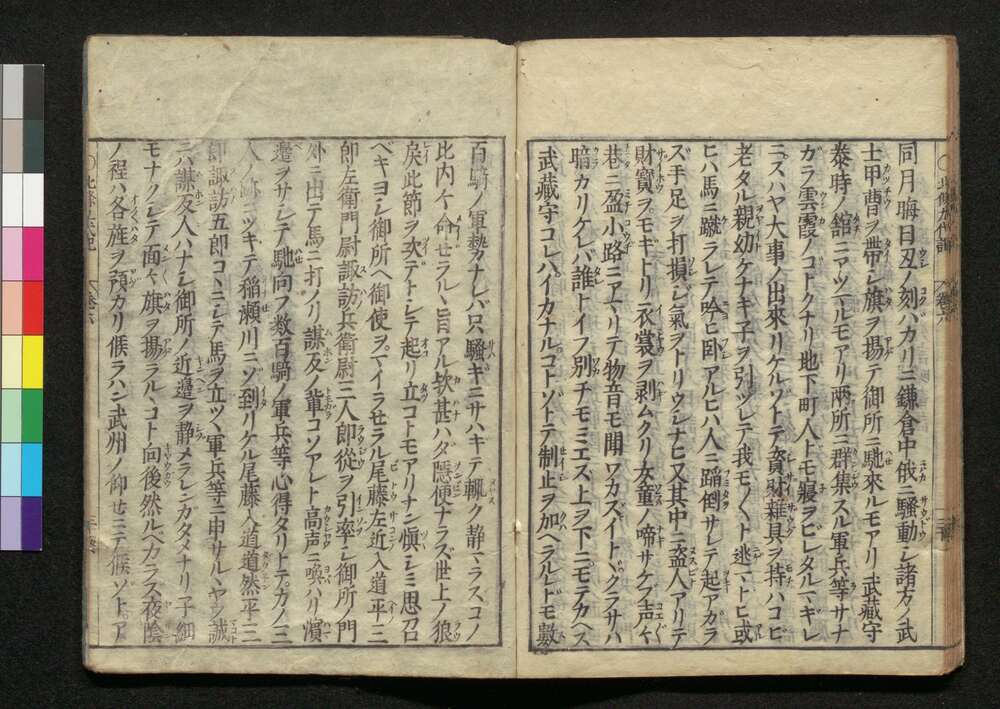 同月晦日丑ノ刻バカリニ鎌倉中俄ニ騒動シ諸方ノ武
士甲曹ヲ帯シ旗ヲ揚テ御所ニ馳來ルモアリ武藏守
泰時ノ舘ニアツマルモアリ両所ニ群集スル軍兵等サナ
ガラ雲霞ノコトクナリ地下町人トモ寝ヲビレタルマギレ
ニスハヤ大事ノ出來リケルソトテ資財雜具ヲ持ハコビ
老タル親幼ケナキ子ヲ引ツレテ我モ〱ト逃マトヒ或
ヒハ馬ニ蹴ラレテ吟ヒ臥アルヒハ人ニ蹈倒サレテ起アカラ
ス手足ヲ打損シ氣ヲトリウシナヒ又其中ニ盗人アリテ
財寳ヲモギトリ衣裳ヲ剥ムクリ女童ノ啼サケブ声チ
巷ニ盈小路ニアマリテ物音モ聞ワカズイトヾクラサハ
暗カリケレバ誰トイフ別チモミエス上ヲ下ニモテカヘス
武藏守コレハイカナルコトソトテ制止ヲ加ヘラルレドモ數
百騎ノ軍勢カナレバ只騒キニサハキテ輙ク静マラスコノ
比内々命セラルヽ旨アル欤甚ハダ隠便ナラズ世上ノ狼
戻此節ヲ次デトシテ起リ立コトモアリナン愼シミ思召
ベキヨシ御所ヘ御使ヲマイラせラル尾藤左近入道平三
郎左衛門尉諏訪兵衛尉三人郎從ヲ引率シ御所ノ門
外ニ出テ馬ニ打ノリ謀反ノ輩コソアレト高声ニ喚ハリ濱
邊ヲサシテ馳向フ数百騎ノ軍兵等心得タリトテカノ三
人ノ跡ニツキテ稲瀬川ニゾ到リケル尾藤入道道然平三
郎諏訪五郎コヽニシテ馬ヲ立ツヽ軍兵等ニ申サルヽヤウ誠
ニハ謀反人ハナシ御所ノ近邉ヲ静メラレンガタメナリ子細
モナクシテ面々旗ヲ揚ラルヽコト向後然ルベカラス夜陰
ノ程ハ各旌ヲ預カリ候ラハン武州ノ仰せニテ候ソトア